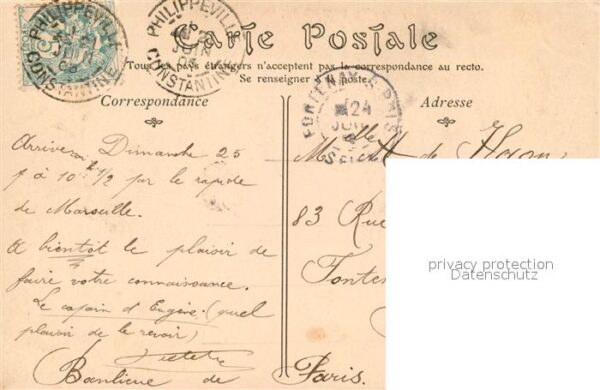 PHILIPPEVILLE
CONSTANTINE
PHILIPPEVILLE
JUIN
CONSTANTINE
Carte Postale
Tous les pays étrangers n'acceptent pas la correspondance au recto.
Se renseigner à la poste.
Correspondance
Adresse
FONTENAY-S-BOIS
24
JUIN
SEINE
Arrive Dimanche 25
à 10 h 1/2 par le rapide
de Marseille.
A bientôt le plaisir de
faire votre connaissance.
Le copain d'Eugène (quel
plaisir de le revoir)
Banlieue de Paris.
Melle
de
83 Rue
Fonten
privacy protection
Datenschutz